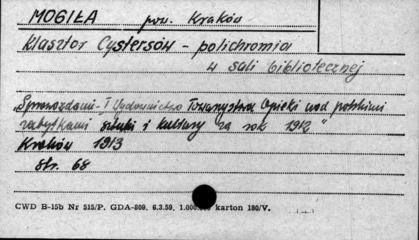 MOGIŁA pow. Kraków
Klasztor Cystersów - polichromia
w sali bibliotecznej
„Sprawozdanie i Wydawnictwo Towarzystwa Opieki nad polskimi
zabytkami sztuki i kultury za rok 1912"
Kraków 1913
str. 68
CWD B-15b Nr 515/P. GDA-809. 6.3.59. 1.000. karton 180/V.